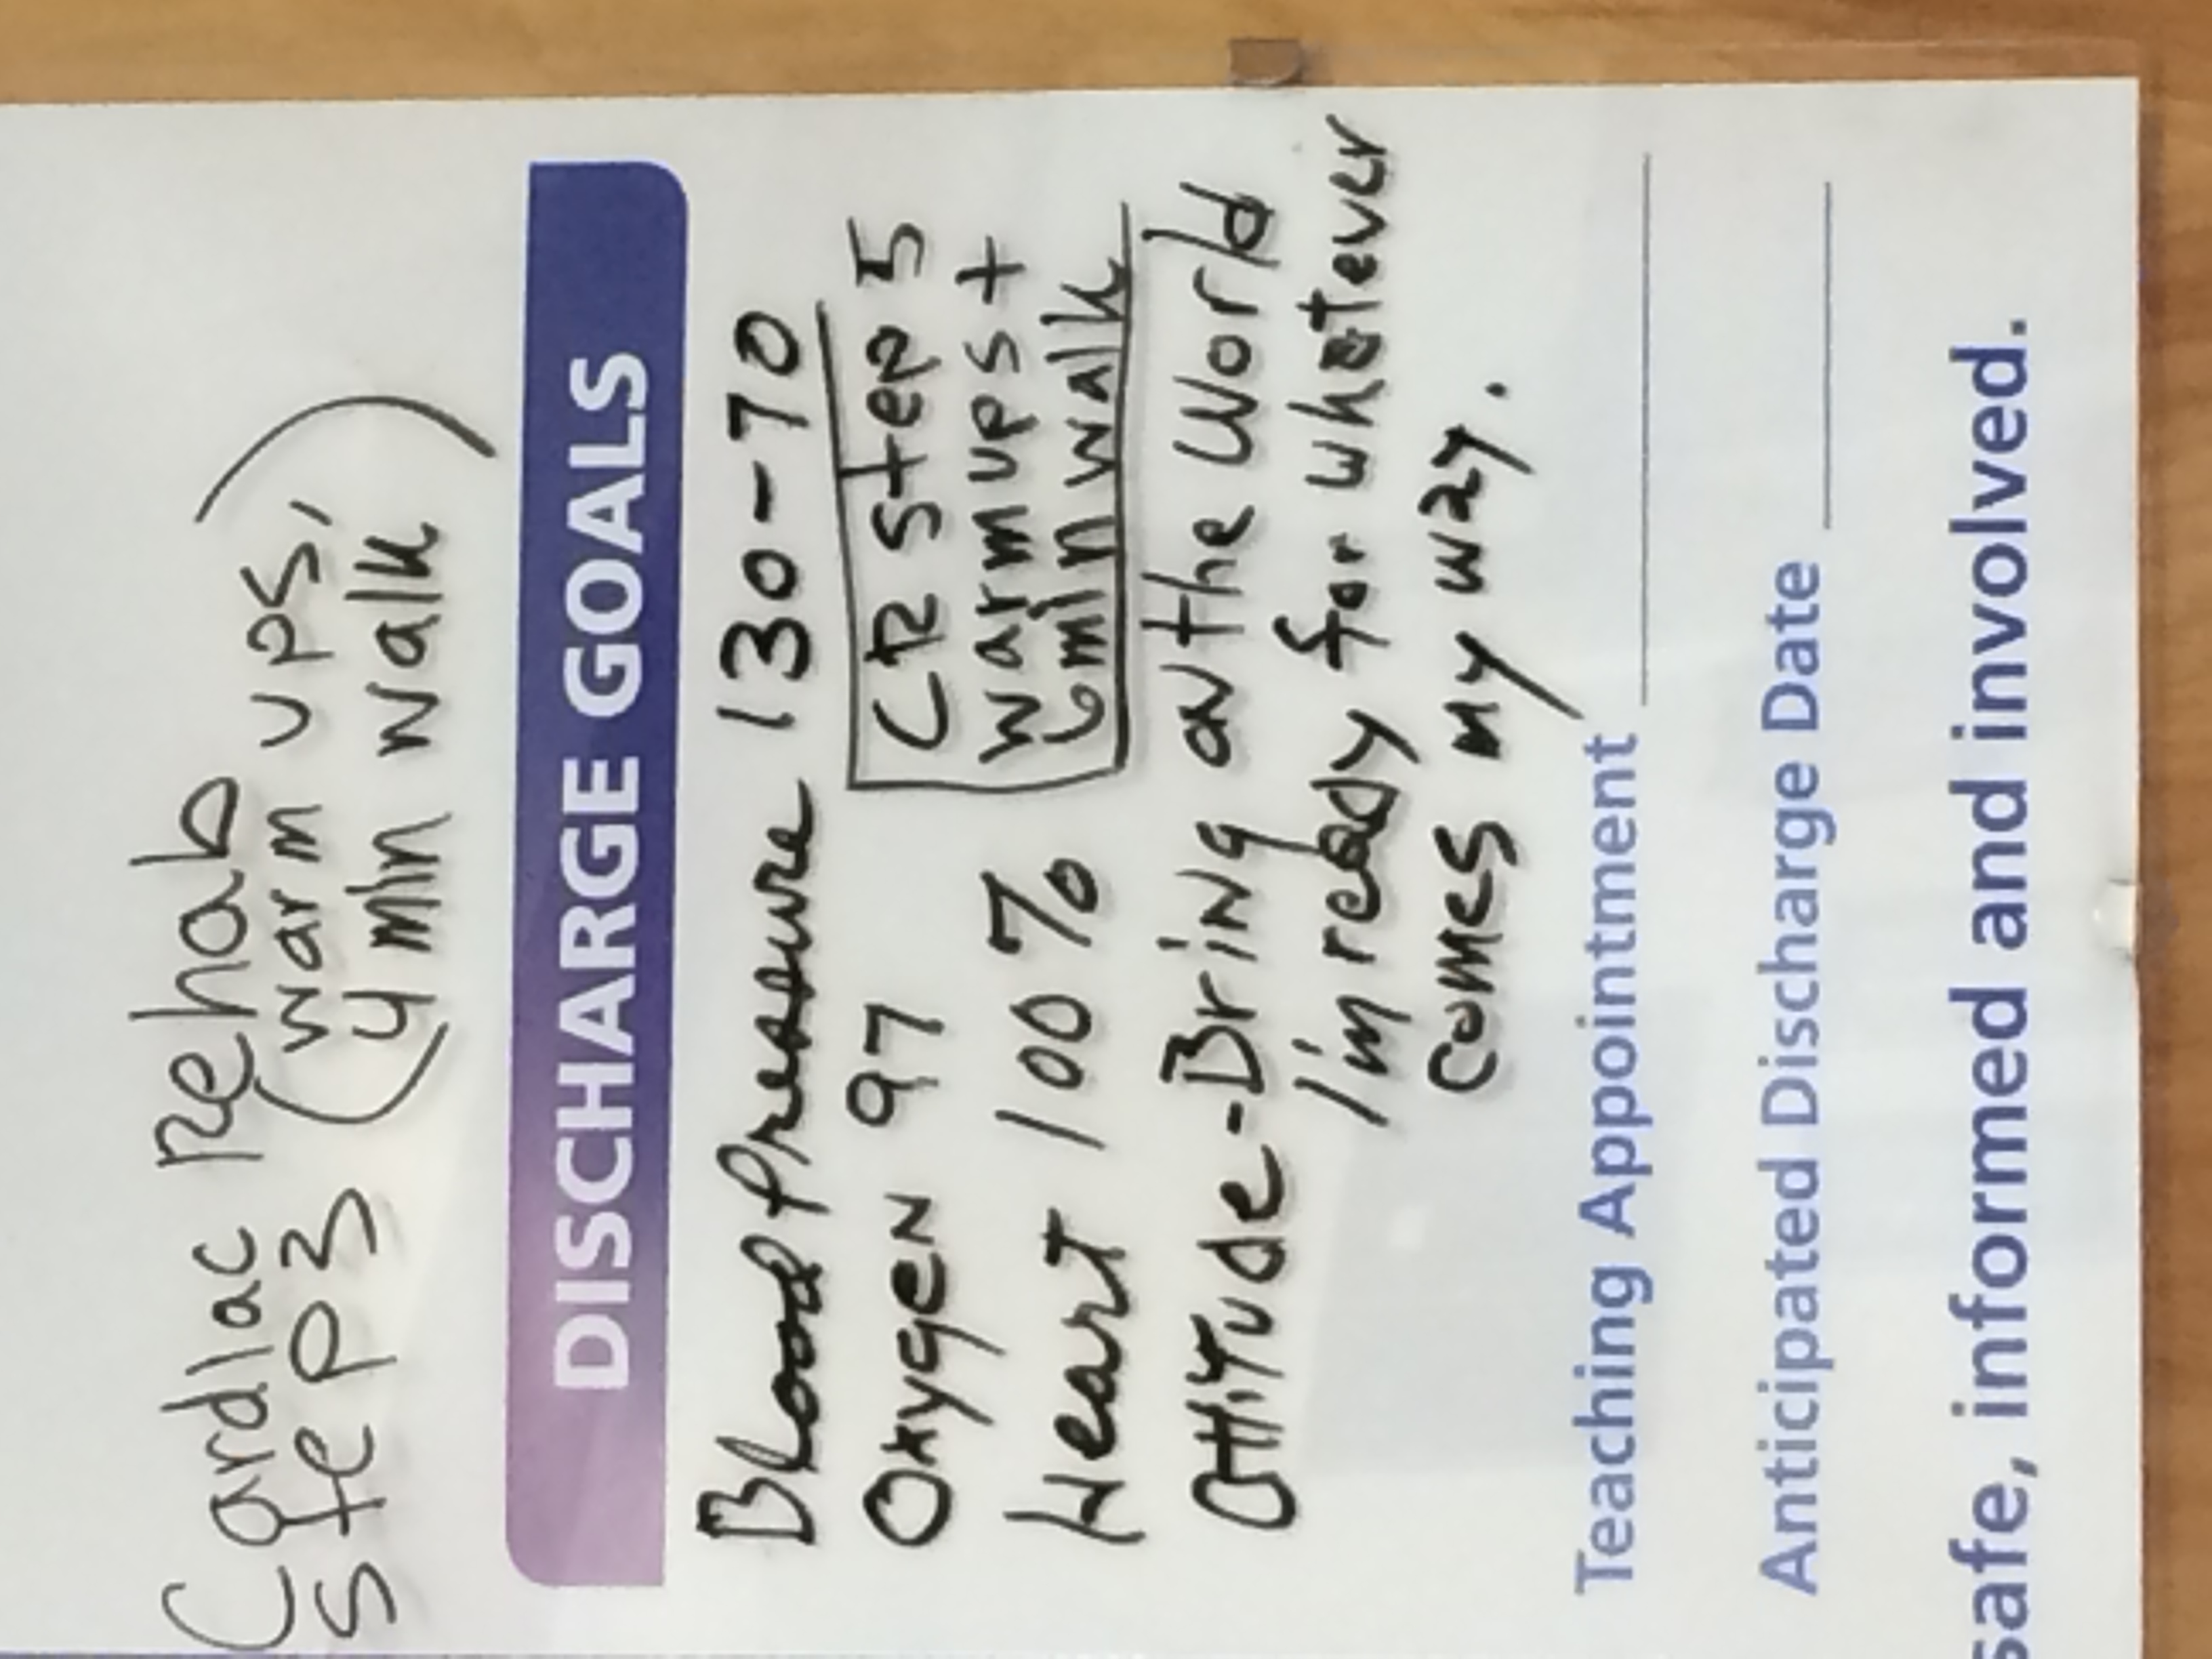 Cardiac Rehab
Step 3 (warm ups,
4 min walk)
DISCHARGE GOALS
Blood Pressure 130-70
Oxygen 97
CR Step 5
warm ups +
6 min walk
Heart 100%
Attitude - Bring on the World
I'm ready for whatever
comes my way.
Teaching Appointment
Anticipated Discharge Date
safe, informed and involved.